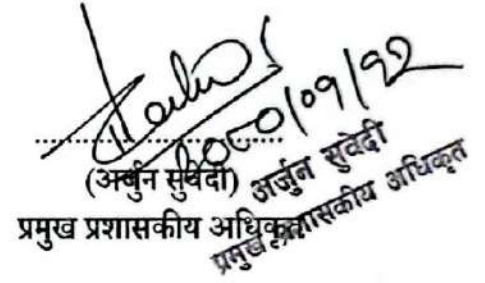 (अर्जुन सुवेदी)
प्रमुख प्रशासकीय अधिकृत
अर्जुन सुवेदी
प्रमुख प्रशासकीय अधिकृत